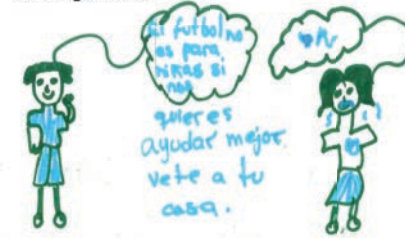 El futbol no
es para
niñas si
nos
quieres
ayudar mejor
vete a tu
casa.